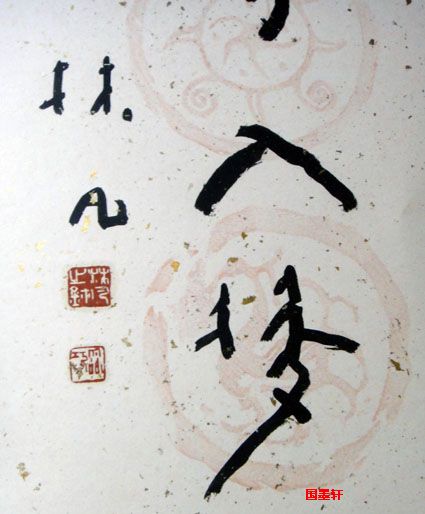 入梦
林凡
国墨轩